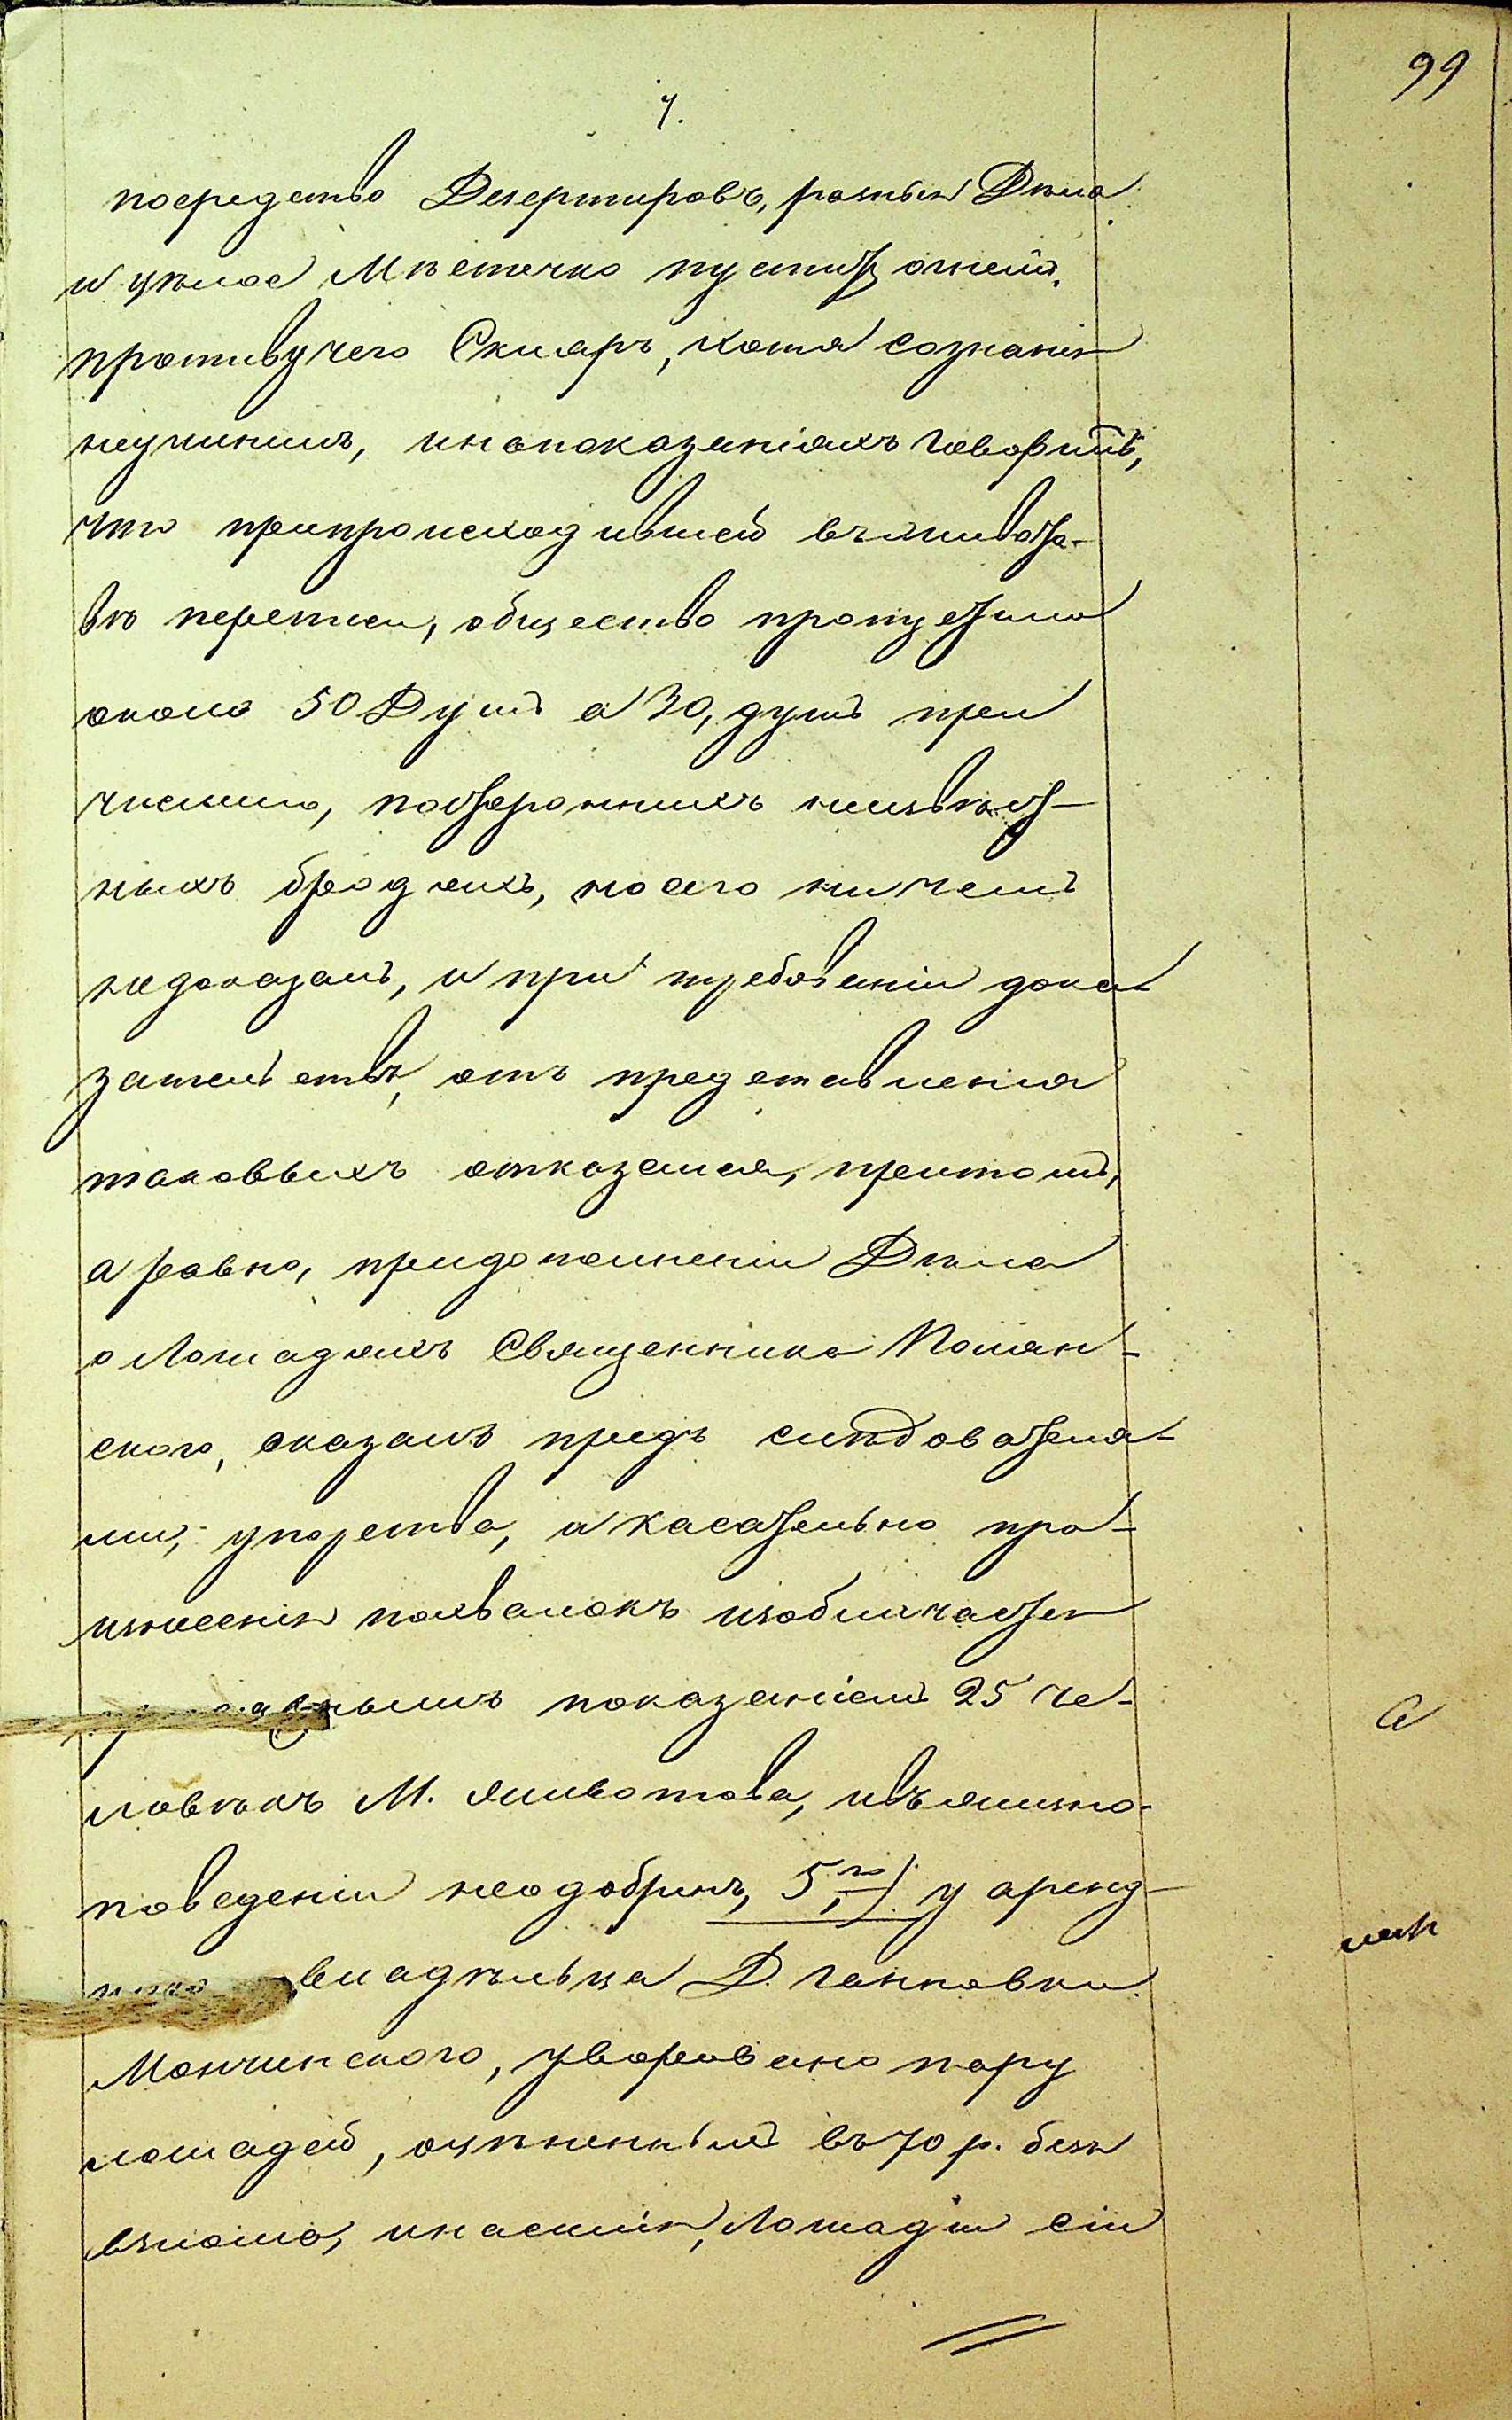 99
7.
посредство Дезертировъ, разныя Дѣла
и цѣлое Мѣстечко пуститъ огнемъ.
противу чего Скляръ, хотя сознанія
неучинилъ, и на показаніяхъ говоритъ,
что припроисходившей въ Ялтово-
вѣ переписи, общество пропустило
около 50 Душъ а 30, душъ при
числило, постороннихъ неизвѣст-
ныхъ бродягъ, но сего ни чемъ
недоказалъ, и при требованіи дока-
зательствъ, отъ представленія
таковыхъ отказался, притомъ,
а равно, придополненіи Дѣла
о Лошадяхъ Священника Полян-
ского, оказалъ предъ слѣдователя-
ми, упорство, и касательно про-
изнесенія похвалокъ изобличается
показаніемъ 25 че-
ловѣкъ М.
поведеніи неодобренъ, 5го) у аренд-
владѣльца Д. Ганковки
Мончинского, уворовано пару
лошадей, оцѣненныхъ въ 70 р. безъ
взлома, и насилія, Лошади сіи